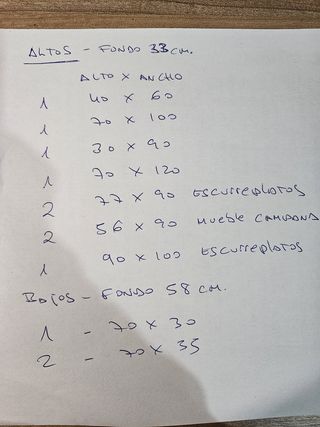 ALTOS - FONDO 33 CM.
ALTO X ANCHO
1 40 X 60
1 70 X 100
1 30 X 90
1 70 X 120
2 77 X 90 ESCURREPLATOS
2 56 X 90 MUEBLE CAMPANA
1 90 X 100 ESCURREPLATOS
BAJOS - FONDO 58 CM.
1 - 70 X 30
2 - 70 X 35